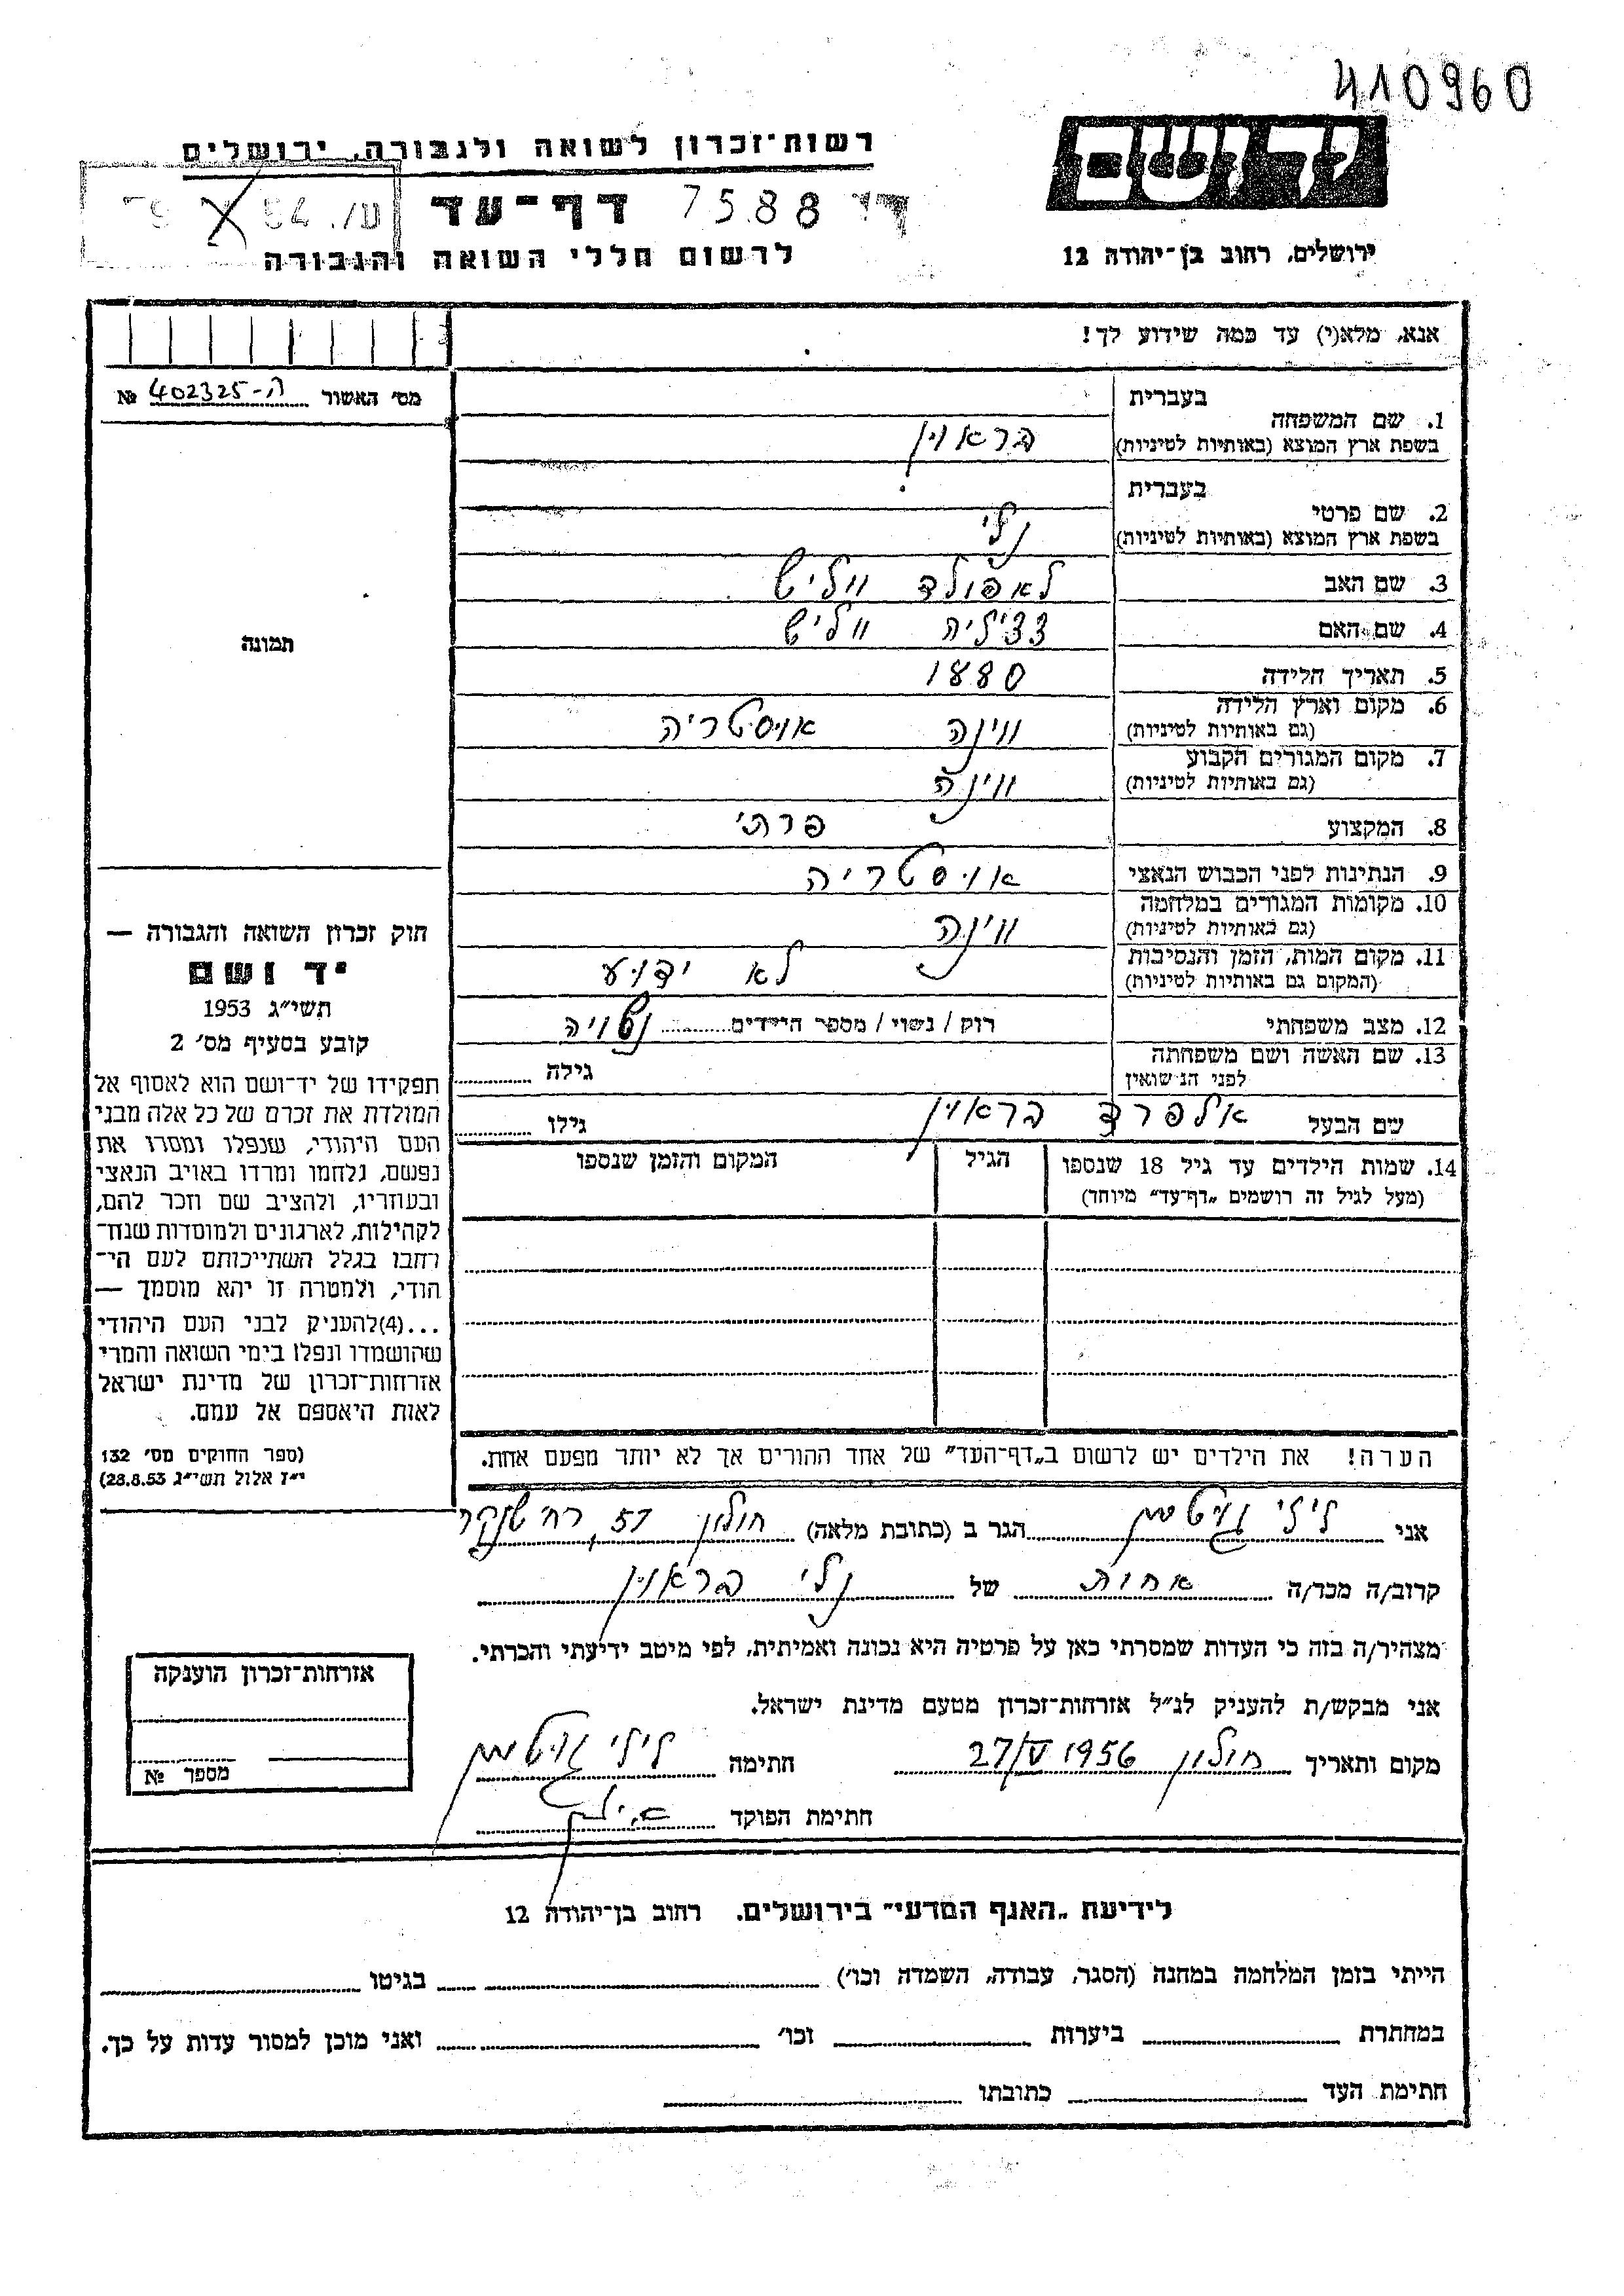 410960
יד ושם
ירושלים, רחוב בן־יהודה 12
רשות־זכרון לשואה ולגבורה, ירושלים
דף־עד 7588
לרשום חללי השואה והגבורה
אנא, מלא(י) עד כמה שידוע לך!
מס׳ האשור № 402325-ה
תמונה
בעברית
1. שם המשפחה
בשפת ארץ המוצא (באותיות לטיניות) בראוין
בעברית
2. שם פרטי
בשפת ארץ המוצא (באותיות לטיניות) נלי
3. שם האב לאפולד ווליש
4. שם האם צציליה ווליש
5. תאריך הלידה 1880
6. מקום וארץ הלידה
(גם באותיות לטיניות) ווינה אויסטריה
7. מקום המגורים הקבוע
(גם באותיות לטיניות) ווינה
8. המקצוע פרתי
9. הנתינות לפני הכבוש הנאצי אויסטריה
10. מקומות המגורים במלחמה
(גם באותיות לטיניות) ווינה
11. מקום המות, הזמן והנסיבות
(המקום גם באותיות לטיניות) לא ידוע
12. מצב משפחתי רוק / נשוי / מספר הילדים נשויה
13. שם האשה ושם משפחתה
לפני הנישואין גילה
שם הבעל אלפרד בראוין גילו
14. שמות הילדים עד גיל 18 שנספו הגיל המקום והזמן שנספו
(מעל לגיל זה רושמים „דף־עד״ מיוחד)
הערה! את הילדים יש לרשום ב„דף־העד״ של אחד ההורים אך לא יותר מפעם אחת.
חוק זכרון השואה והגבורה —
יד ושם
תשי״ג 1953
קובע בסעיף מס׳ 2
תפקידו של יד־ושם הוא לאסוף אל
המולדת את זכרם של כל אלה מבני
העם היהודי, שנפלו ומסרו את
נפשם, נלחמו ומרדו באויב הנאצי
ובעוזריו, ולהציב שם וזכר להם,
לקהילות, לארגונים ולמוסדות שנח־
רחבו בגלל השתייכותם לעם הי־
הודי, ולמטרה זו יהא מוסמך —
...(4)להעניק לבני העם היהודי
שהושמדו ונפלו בימי השואה והמרי
אזרחות־זכרון של מדינת ישראל
לאות היאספם אל עמם.
(ספר החוקים מס׳ 132
י״ז אלול תשי״ג 28.8.53)
אני לילי הגר ב (כתובת מלאה) חולון 57, רח׳ שנקר
קרוב/ה מכר/ה אחות של נלי בראוין
מצהיר/ה בזה כי העדות שמסרתי כאן על פרטיה היא נכונה ואמיתית, לפי מיטב ידיעתי והכרתי.
אני מבקש/ת להעניק לנ״ל אזרחות־זכרון מטעם מדינת ישראל.
מקום ותאריך חולון 27/V 1956 חתימה לילי
חתימת הפוקד
אזרחות־זכרון הוענקה
מספר №
לידיעת „האגף המדעי״ בירושלים, רחוב בן־יהודה 12
הייתי בזמן המלחמה במחנה (הסגר, עבודה, השמדה וכו׳) בגיטו
במחתרת ביערות וכו׳ ואני מוכן למסור עדות על כך.
חתימת העד כתובתו